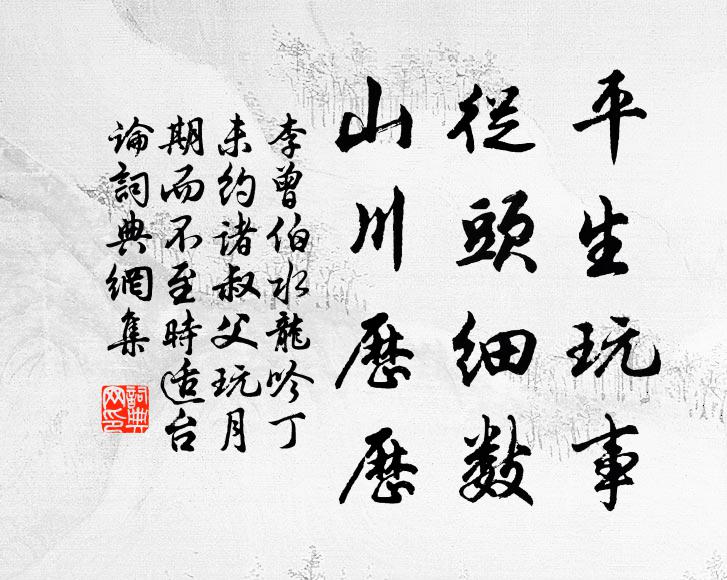 平生玩事
從頭細數
山川歷歷
李曾伯水龍吟丁
未約諸叔父玩月
期而不至時適台
論詞典網集
詞典網印